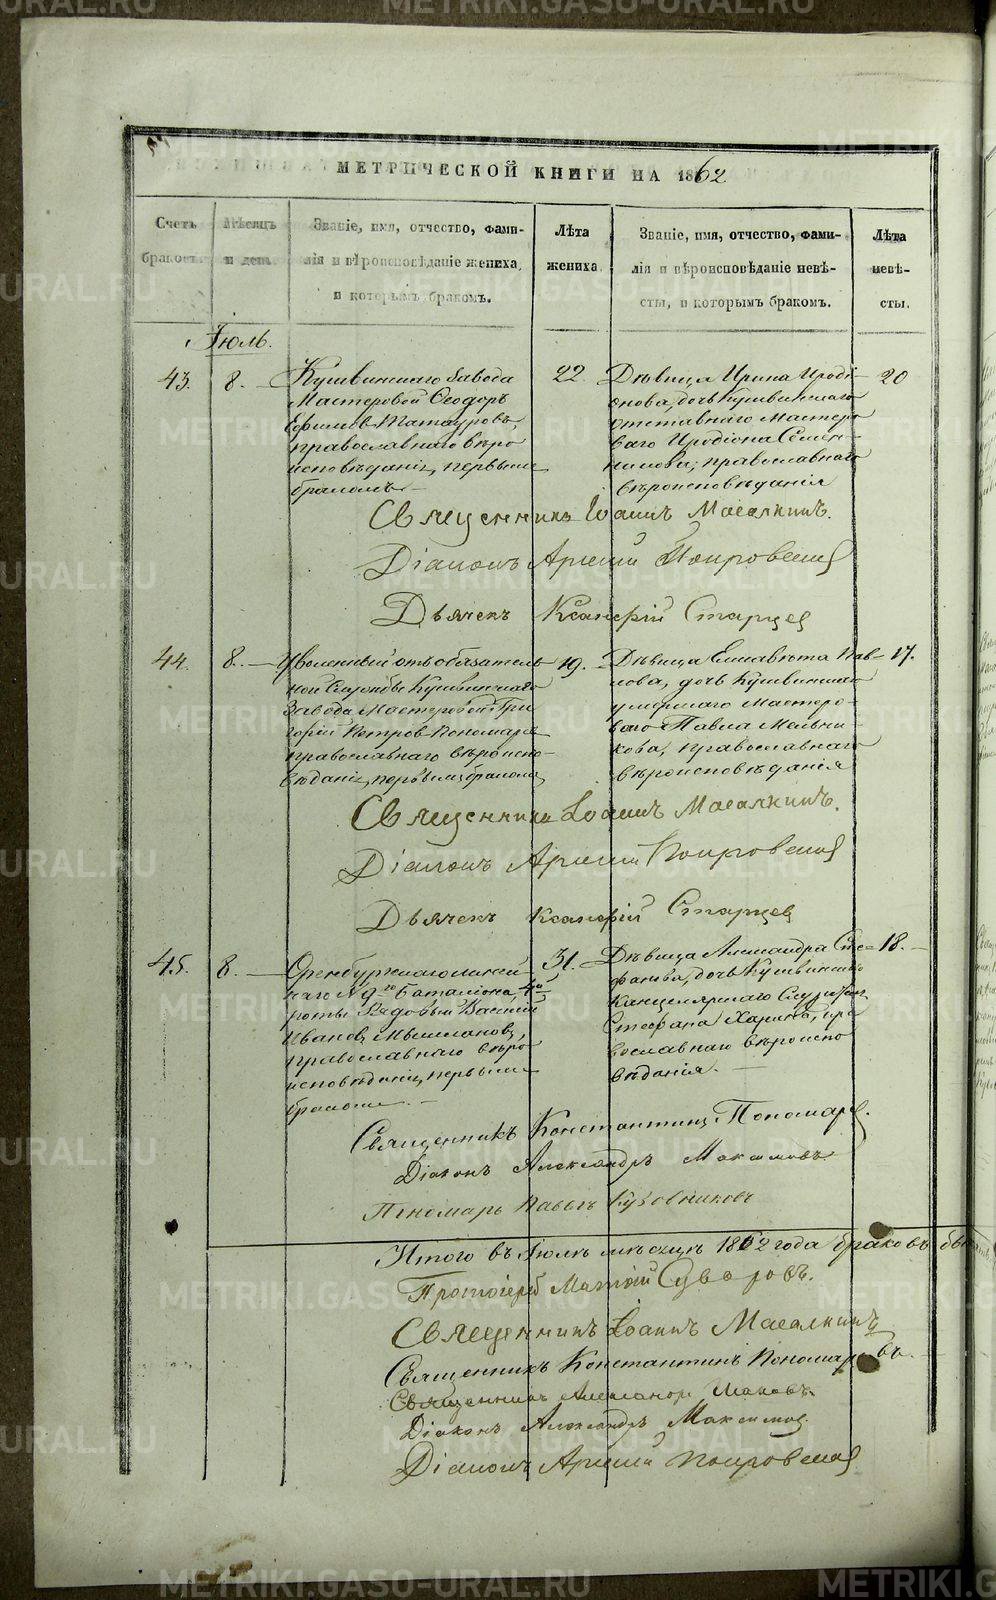 МЕТРИЧЕСКОЙ КНИГИ НА 1862
Счетъ браковъ.
Мѣсяцъ и день.
Званіе, имя, отчество, фами-
лія и вѣроисповѣданіе жениха,
и которымъ бракомъ.
Лѣта
жениха.
Званіе, имя, отчество, фами-
лія и вѣроисповѣданіе невѣ-
сты, и которымъ бракомъ.
Лѣта
невѣ-
сты.
Іюль.
43.
8.
Кушвинскаго Завода
Мастеровой Ѳеодоръ
Ефимовъ Татауровъ,
православнаго вѣро
исповѣданія, первымъ
бракомъ
22.
Дѣвица Ирина Ироді-
онова, дочь Кушвинскаго
отставнаго Мастеро
ваго Иродіона Семен-
православнаго
вѣроисповѣданія
20
Священникъ Іоаннъ Масалкинъ.
Діаконъ Арсеній Покровскій
Дьячекъ Ксанфій Старцев
44.
8.
Уволенный отъ обязатель
ной Службы Кушвинскаго
Завода Мастеровой Гри
горій Петровъ Пономарев
православнаго вѣроиспо-
вѣданія, первымъ бракомъ
19.
Дѣвица Елисавета Пав-
лова, дочь Кушвинскаго
умершаго Мастеро-
ваго Павла Мельни-
кова, православнаго
вѣроисповѣданія
17.
Священникъ Іоаннъ Масалкинъ.
Діаконъ Арсеній Покровскій
Дьячекъ Ксанфій Старцев
45.
8.
Оренбургскаго линей
наго №9го Баталіона, 4й
роты Рядовый Василій
Ивановъ
православнаго вѣро
исповѣданія, первымъ
бракомъ.
31.
Дѣвица Александра Сте-
фанова, дочь Кушвинскаго
Канцелярскаго Служителя
Стефана Харина, пра
вославнаго вѣроиспо
вѣданія.
18.
Священникъ Константинъ Пономарев.
Діаконъ Александръ Максимовъ
Пономарь Павелъ Кузовниковъ
Итого въ Іюлѣ мѣсяцѣ 1862 года браковъ
Протоіерей Матѳій Суворовъ.
Священникъ Іоаннъ Масалкинъ
Священникъ Константинъ Пономаревъ.
Священникъ Александръ
Діаконъ Александръ Максимов.
Діаконъ Арсеній Покровскій
METRIKI.GASO-URAL.RU